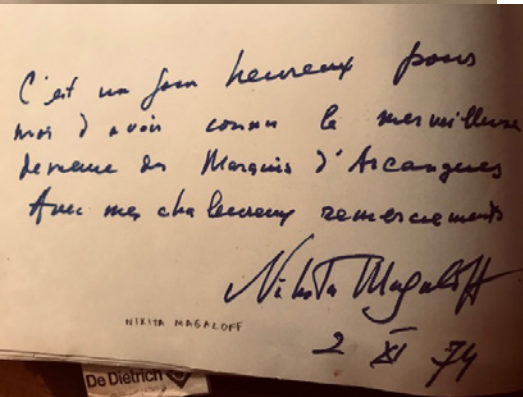 C'est un jour heureux pour
moi d'avoir connu le merveilleuse
demeure du Marquis d'Arcangues
Avec mes chaleureux remerciements
Nikita Magaloff
NIKITA MAGALOFF
2 XI 74
De Dietrich